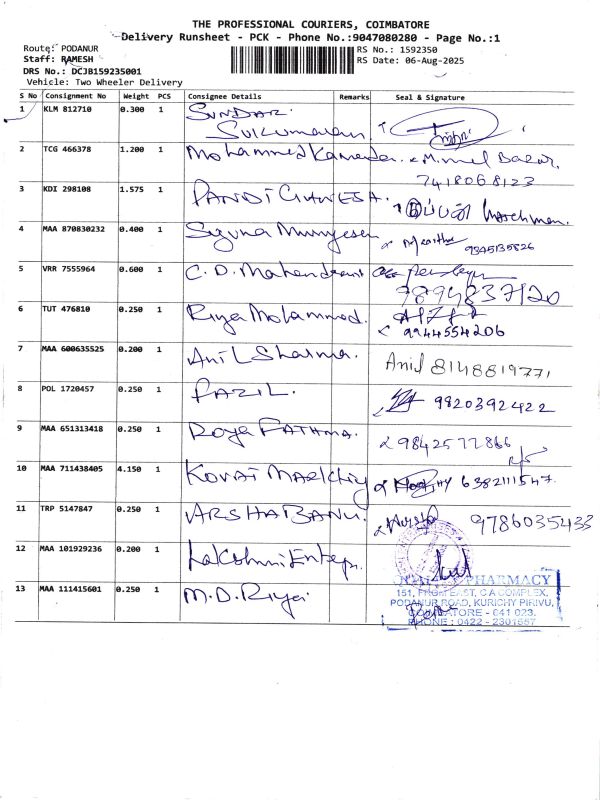 THE PROFESSIONAL COURIERS, COIMBATORE
Delivery Runsheet - PCK - Phone No.:9047080280 - Page No.:1
Route: PODANUR
RS No.: 1592350
Staff: RAMESH
RS Date: 06-Aug-2025
DRS No.: DCJB159235001
Vehicle: Two Wheeler Delivery
S No Consignment No Weight PCS Consignee Details Remarks Seal & Signature
1 KLM 812710 0.300 1 SUNDAR
Sukumaran
2 TCG 466378 1.200 1 Mohammed
7418068123
3 KDI 298108 1.575 1 Watchman.
4 MAA 870830232 0.400 1 9845135826
5 VRR 7555964 0.600 1 C. D.
9894837120
6 TUT 476810 0.250 1 Riya Mohammed.
9944554206
7 MAA 600635525 0.200 1 Anil Sharma. Anil 8148819771
8 POL 1720457 0.250 1 FAZIL. 9820392422
9 MAA 651313418 0.250 1 Roya FATHMA. 9842577866
10 MAA 711438405 4.150 1 KOVAI 6382111547.
11 TRP 5147847 0.250 1 ARSHABANU. 9786035433
12 MAA 101929236 0.200 1 Lakshmi
13 MAA 111415601 0.250 1 M.D.
PHARMACY
151, EAST, C A COMPLEX,
PODANUR ROAD, KURICHY PIRIVU,
COIMBATORE - 641 023.
PHONE : 0422 - 2301557